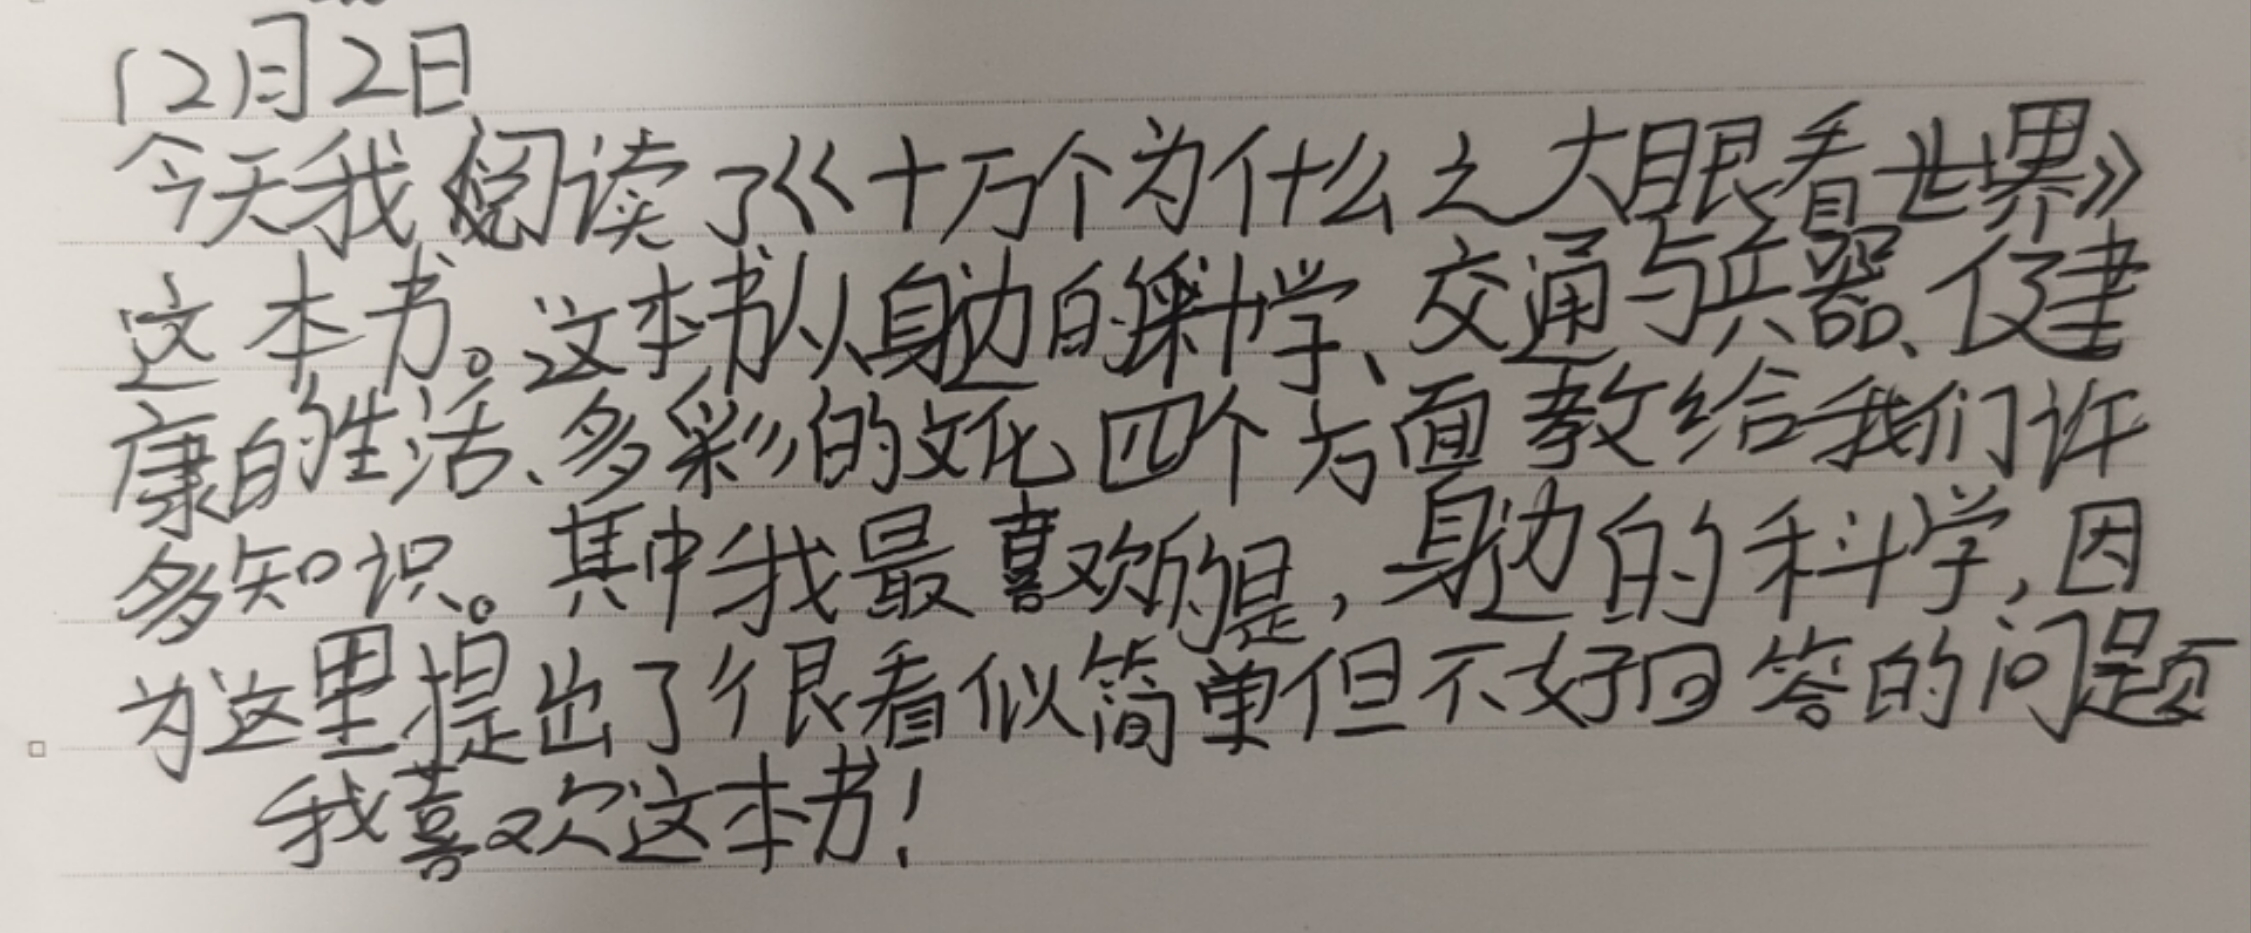 12月2日
今天我阅读了《十万个为什么之大眼看世界》
这本书。这本书从身边的科学、交通与兵器、健
康的生活、多彩的文化四个方面教给我们许
多知识。其中我最喜欢的是,身边的科学,因
为这里提出了很看似简单但不好回答的问题
我喜欢这本书!